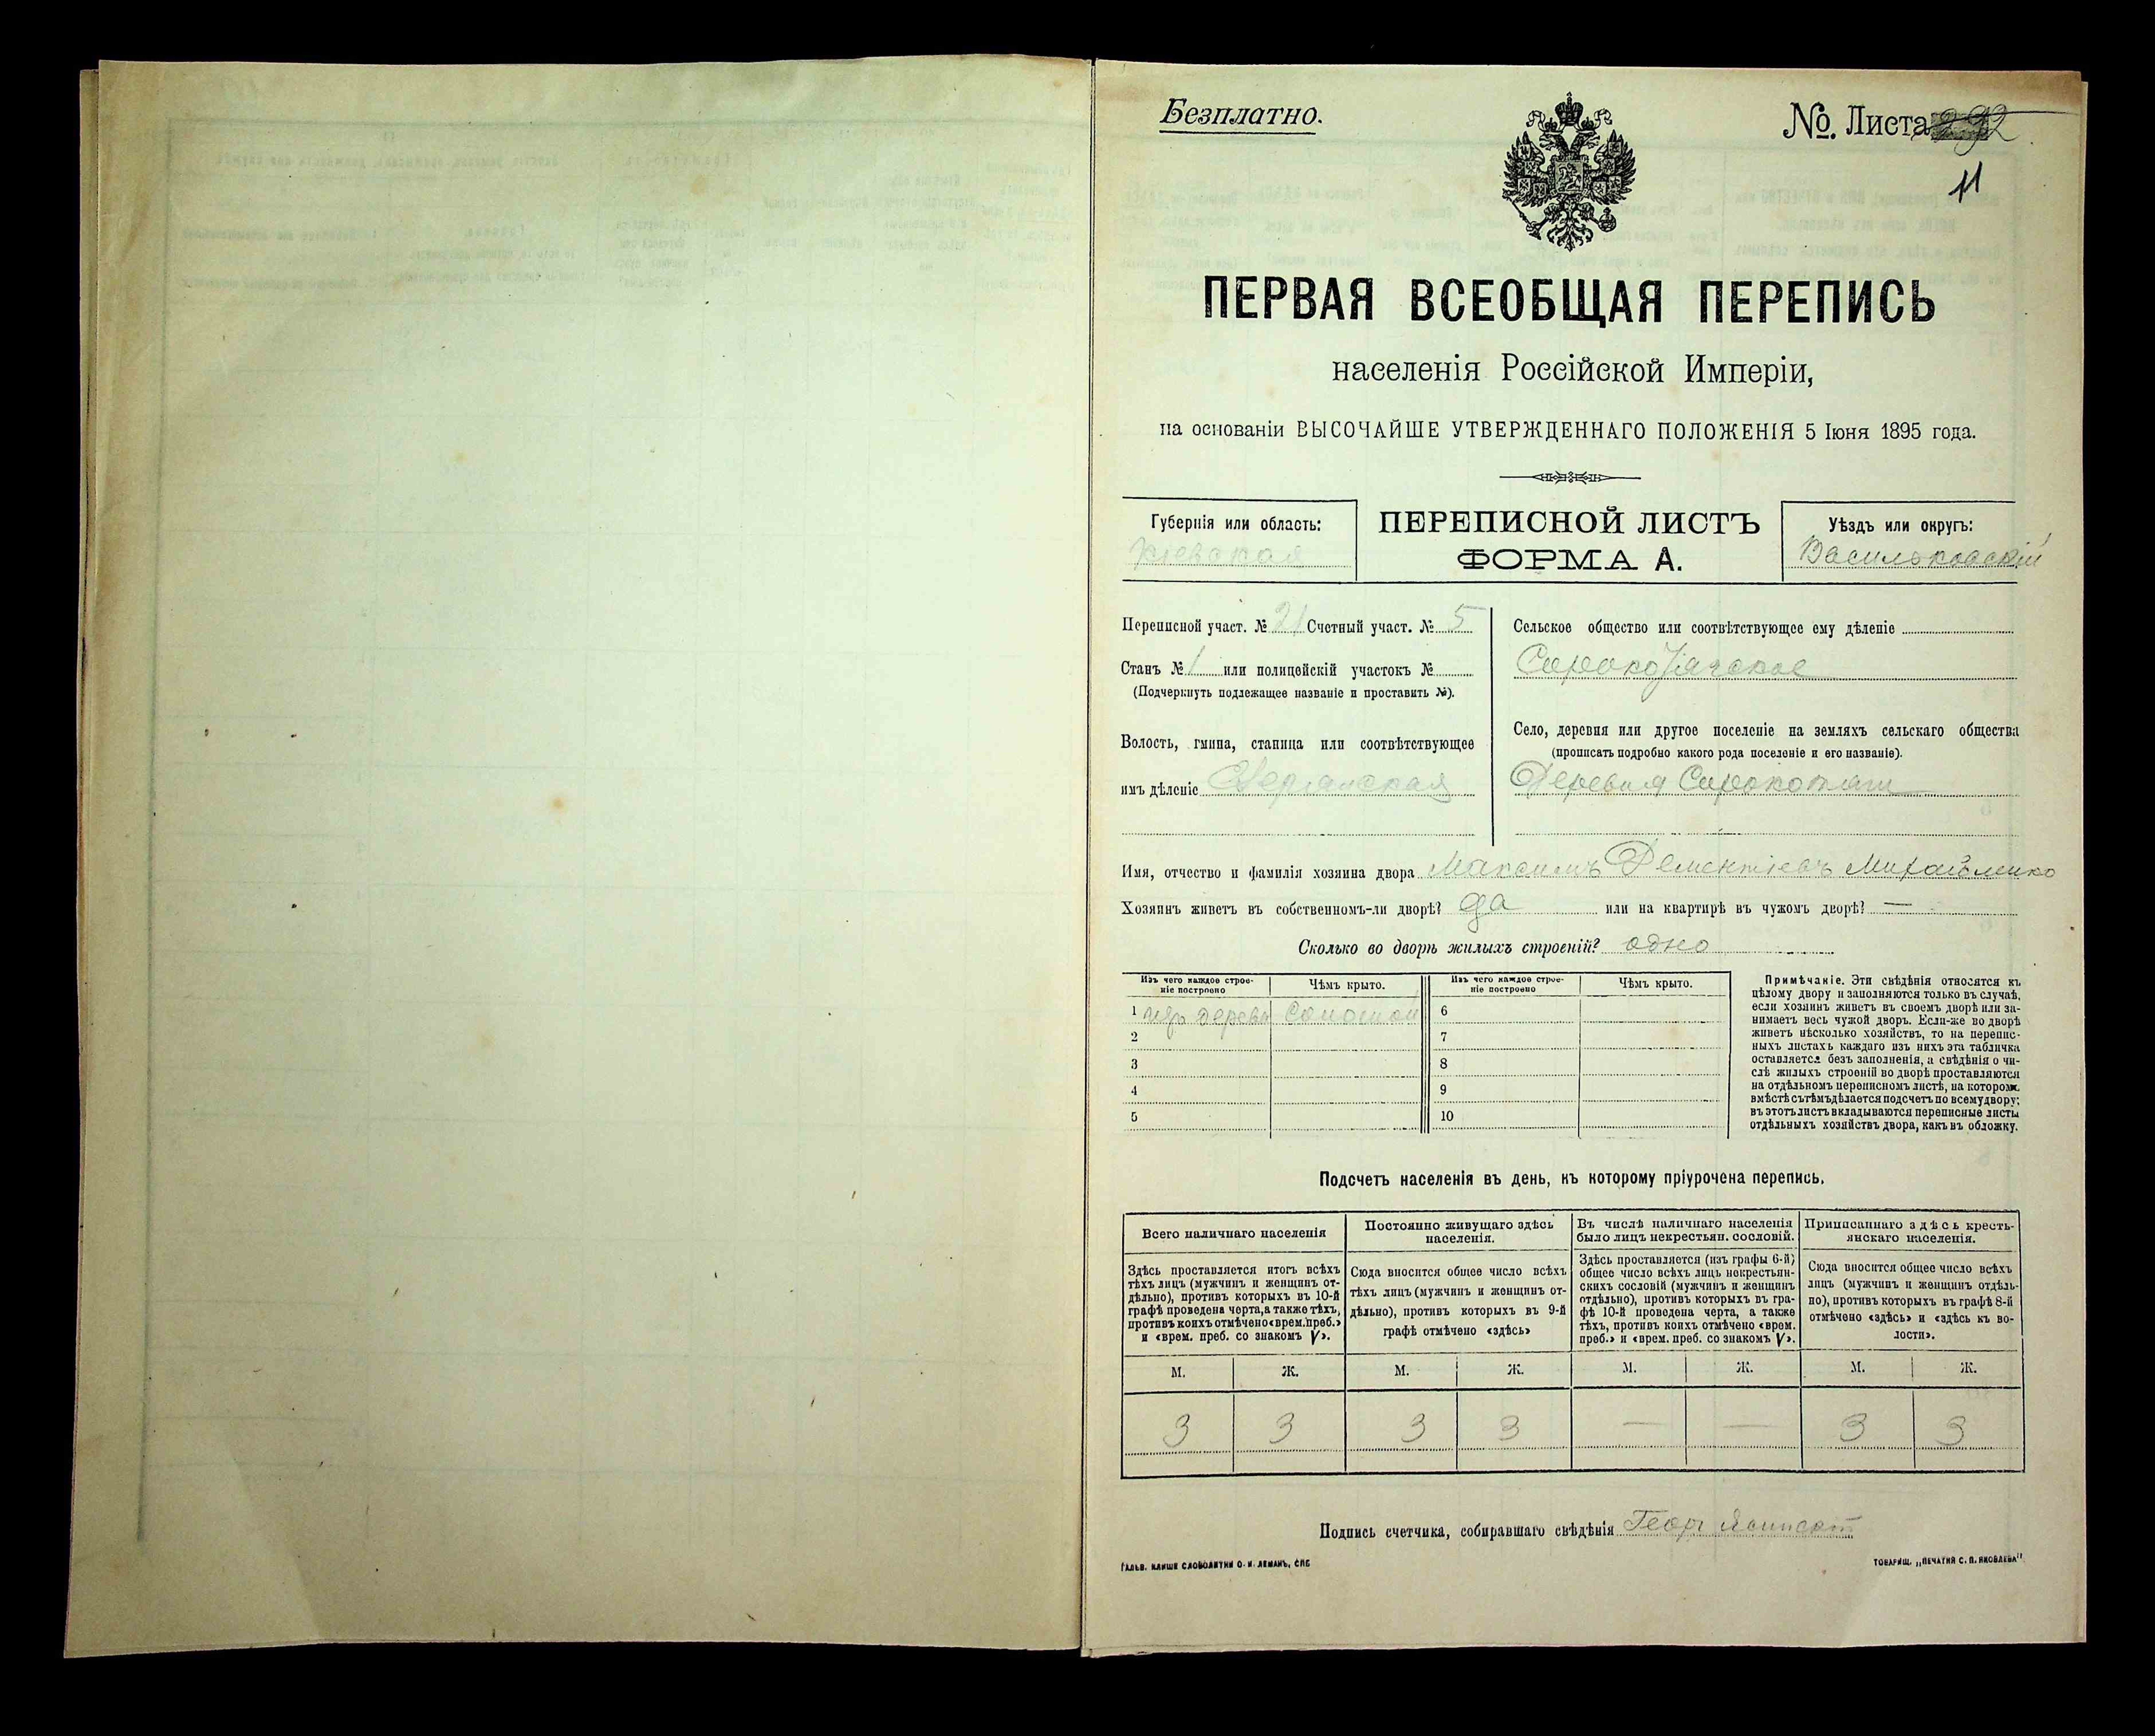 Безплатно.
№. Листа 292
11
ПЕРВАЯ ВСЕОБЩАЯ ПЕРЕПИСЬ
населенія Россійской Имперіи,
на основаніи ВЫСОЧАЙШЕ УТВЕРЖДЕННАГО ПОЛОЖЕНІЯ 5 Іюня 1895 года.
Губернія или область:
Кіевская
ПЕРЕПИСНОЙ ЛИСТЪ
ФОРМА А.
Уѣздъ или округъ:
Васильковскій
Переписной участ. № 21 Счетный участ. № 5
Станъ № 1 или полицейскій участокъ №
(Подчеркнуть подлежащее названіе и проставить №).
Волость, гмина, станица или соотвѣтствующее
имъ дѣленіе
Сельское общество или соотвѣтствующее ему дѣленіе
Сорокотяжское
Село, деревня или другое поселеніе на земляхъ сельскаго общества
(прописать подробно какого рода поселеніе и его названіе).
Деревня Сорокотяги
Имя, отчество и фамилія хозяина двора Максимъ Дементіевъ Михайленко
Хозяинъ живетъ въ собственномъ-ли дворѣ? да или на квартирѣ въ чужомъ дворѣ? —
Сколько во дворѣ жилыхъ строеній? одно
Изъ чего каждое строе-
ніе построено
Чѣмъ крыто.
Изъ чего каждое строе-
ніе построено
Чѣмъ крыто.
1 изъ дерева Соломой 6
2 7
3 8
4 9
5 10
Примѣчаніе. Эти свѣдѣнія относятся къ
цѣлому двору и заполняются только въ случаѣ,
если хозяинъ живетъ въ своемъ дворѣ или за-
нимаетъ весь чужой дворъ. Если-же во дворѣ
живетъ нѣсколько хозяйствъ, то на перепис-
ныхъ листахъ каждаго изъ нихъ эта табличка
оставляется безъ заполненія, а свѣдѣнія о чи-
слѣ жилыхъ строеній во дворѣ проставляются
на отдѣльномъ переписномъ листѣ, на которомъ
вмѣстѣ съ тѣмъ дѣлается подсчетъ по всему двору;
въ этотъ листъ вкладываются переписные листы
отдѣльныхъ хозяйствъ двора, какъ въ обложку.
Подсчетъ населенія въ день, къ которому пріурочена перепись.
Всего наличнаго населенія
Здѣсь проставляется итогъ всѣхъ
тѣхъ лицъ (мужчинъ и женщинъ от-
дѣльно), противъ которыхъ въ 10-й
графѣ проведена черта, а также тѣхъ,
противъ коихъ отмѣчено «врем. преб.»
и «врем. преб. со знакомъ V».
Постоянно живущаго здѣсь
населенія.
Сюда вносится общее число всѣхъ
тѣхъ лицъ (мужчинъ и женщинъ от-
дѣльно), противъ которыхъ въ 9-й
графѣ отмѣчено «здѣсь»
Въ числѣ наличнаго населенія
было лицъ некрестьян. сословій.
Здѣсь проставляется (изъ графы 6-й)
общее число всѣхъ лицъ некрестьян-
скихъ сословій (мужчинъ и женщинъ
отдѣльно), противъ которыхъ въ гра-
фѣ 10-й проведена черта, а также
тѣхъ, противъ коихъ отмѣчено «врем.
преб.» и «врем. преб. со знакомъ V».
Приписаннаго здѣсь кресть-
янскаго населенія.
Сюда вносится общее число всѣхъ
лицъ (мужчинъ и женщинъ отдѣль-
но), противъ которыхъ въ графѣ 8-й
отмѣчено «здѣсь» и «здѣсь къ во-
лости».
М. Ж. М. Ж. М. Ж. М. Ж.
3 3 3 3 — — 3 3
Подпись счетчика, собиравшаго свѣдѣнія
ГАЛЬВ. КЛИШЕ СЛОВОЛИТНИ О. И. ЛЕМАНЪ, СПБ
ТОВАРИЩ. „ПЕЧАТНЯ С. П. ЯКОВЛЕВА"